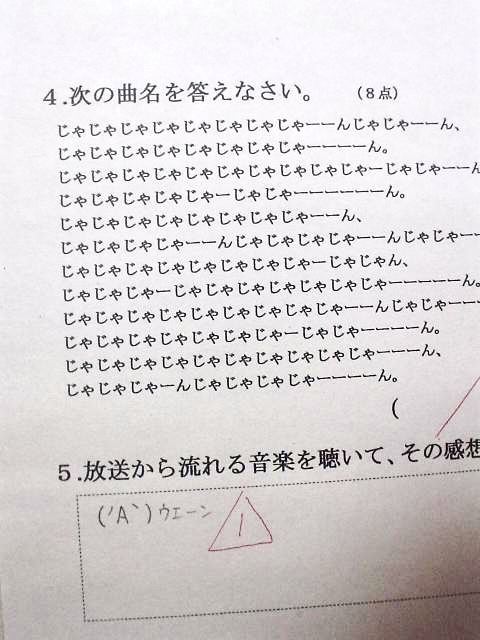 4.次の曲名を答えなさい。 （8点）
じゃじゃじゃじゃじゃじゃじゃじゃーーんじゃじゃーーん、
じゃじゃじゃじゃじゃじゃじゃじゃーーーーん。
じゃじゃじゃじゃじゃじゃじゃじゃじゃじゃーじゃじゃーーん
じゃじゃじゃじゃじゃーじゃじゃーーーーーーん。
じゃじゃじゃじゃじゃじゃじゃじゃーーん、
じゃじゃじゃじゃーーんじゃじゃじゃじゃーーんじゃじゃーー
じゃじゃじゃじゃじゃじゃじゃじゃーじゃじゃん、
じゃじゃじゃーじゃじゃじゃじゃじゃじゃじゃーーーーーん。
じゃじゃじゃじゃじゃじゃじゃじゃじゃじゃーーんじゃーーー
じゃじゃじゃじゃじゃじゃじゃーじゃじゃーーーーん。
じゃじゃじゃじゃじゃじゃじゃじゃじゃじゃーーーん、
じゃじゃじゃーんじゃじゃじゃじゃーーーーん。
(
5.放送から流れる音楽を聴いて、その感想
('A`)ウエーン
1